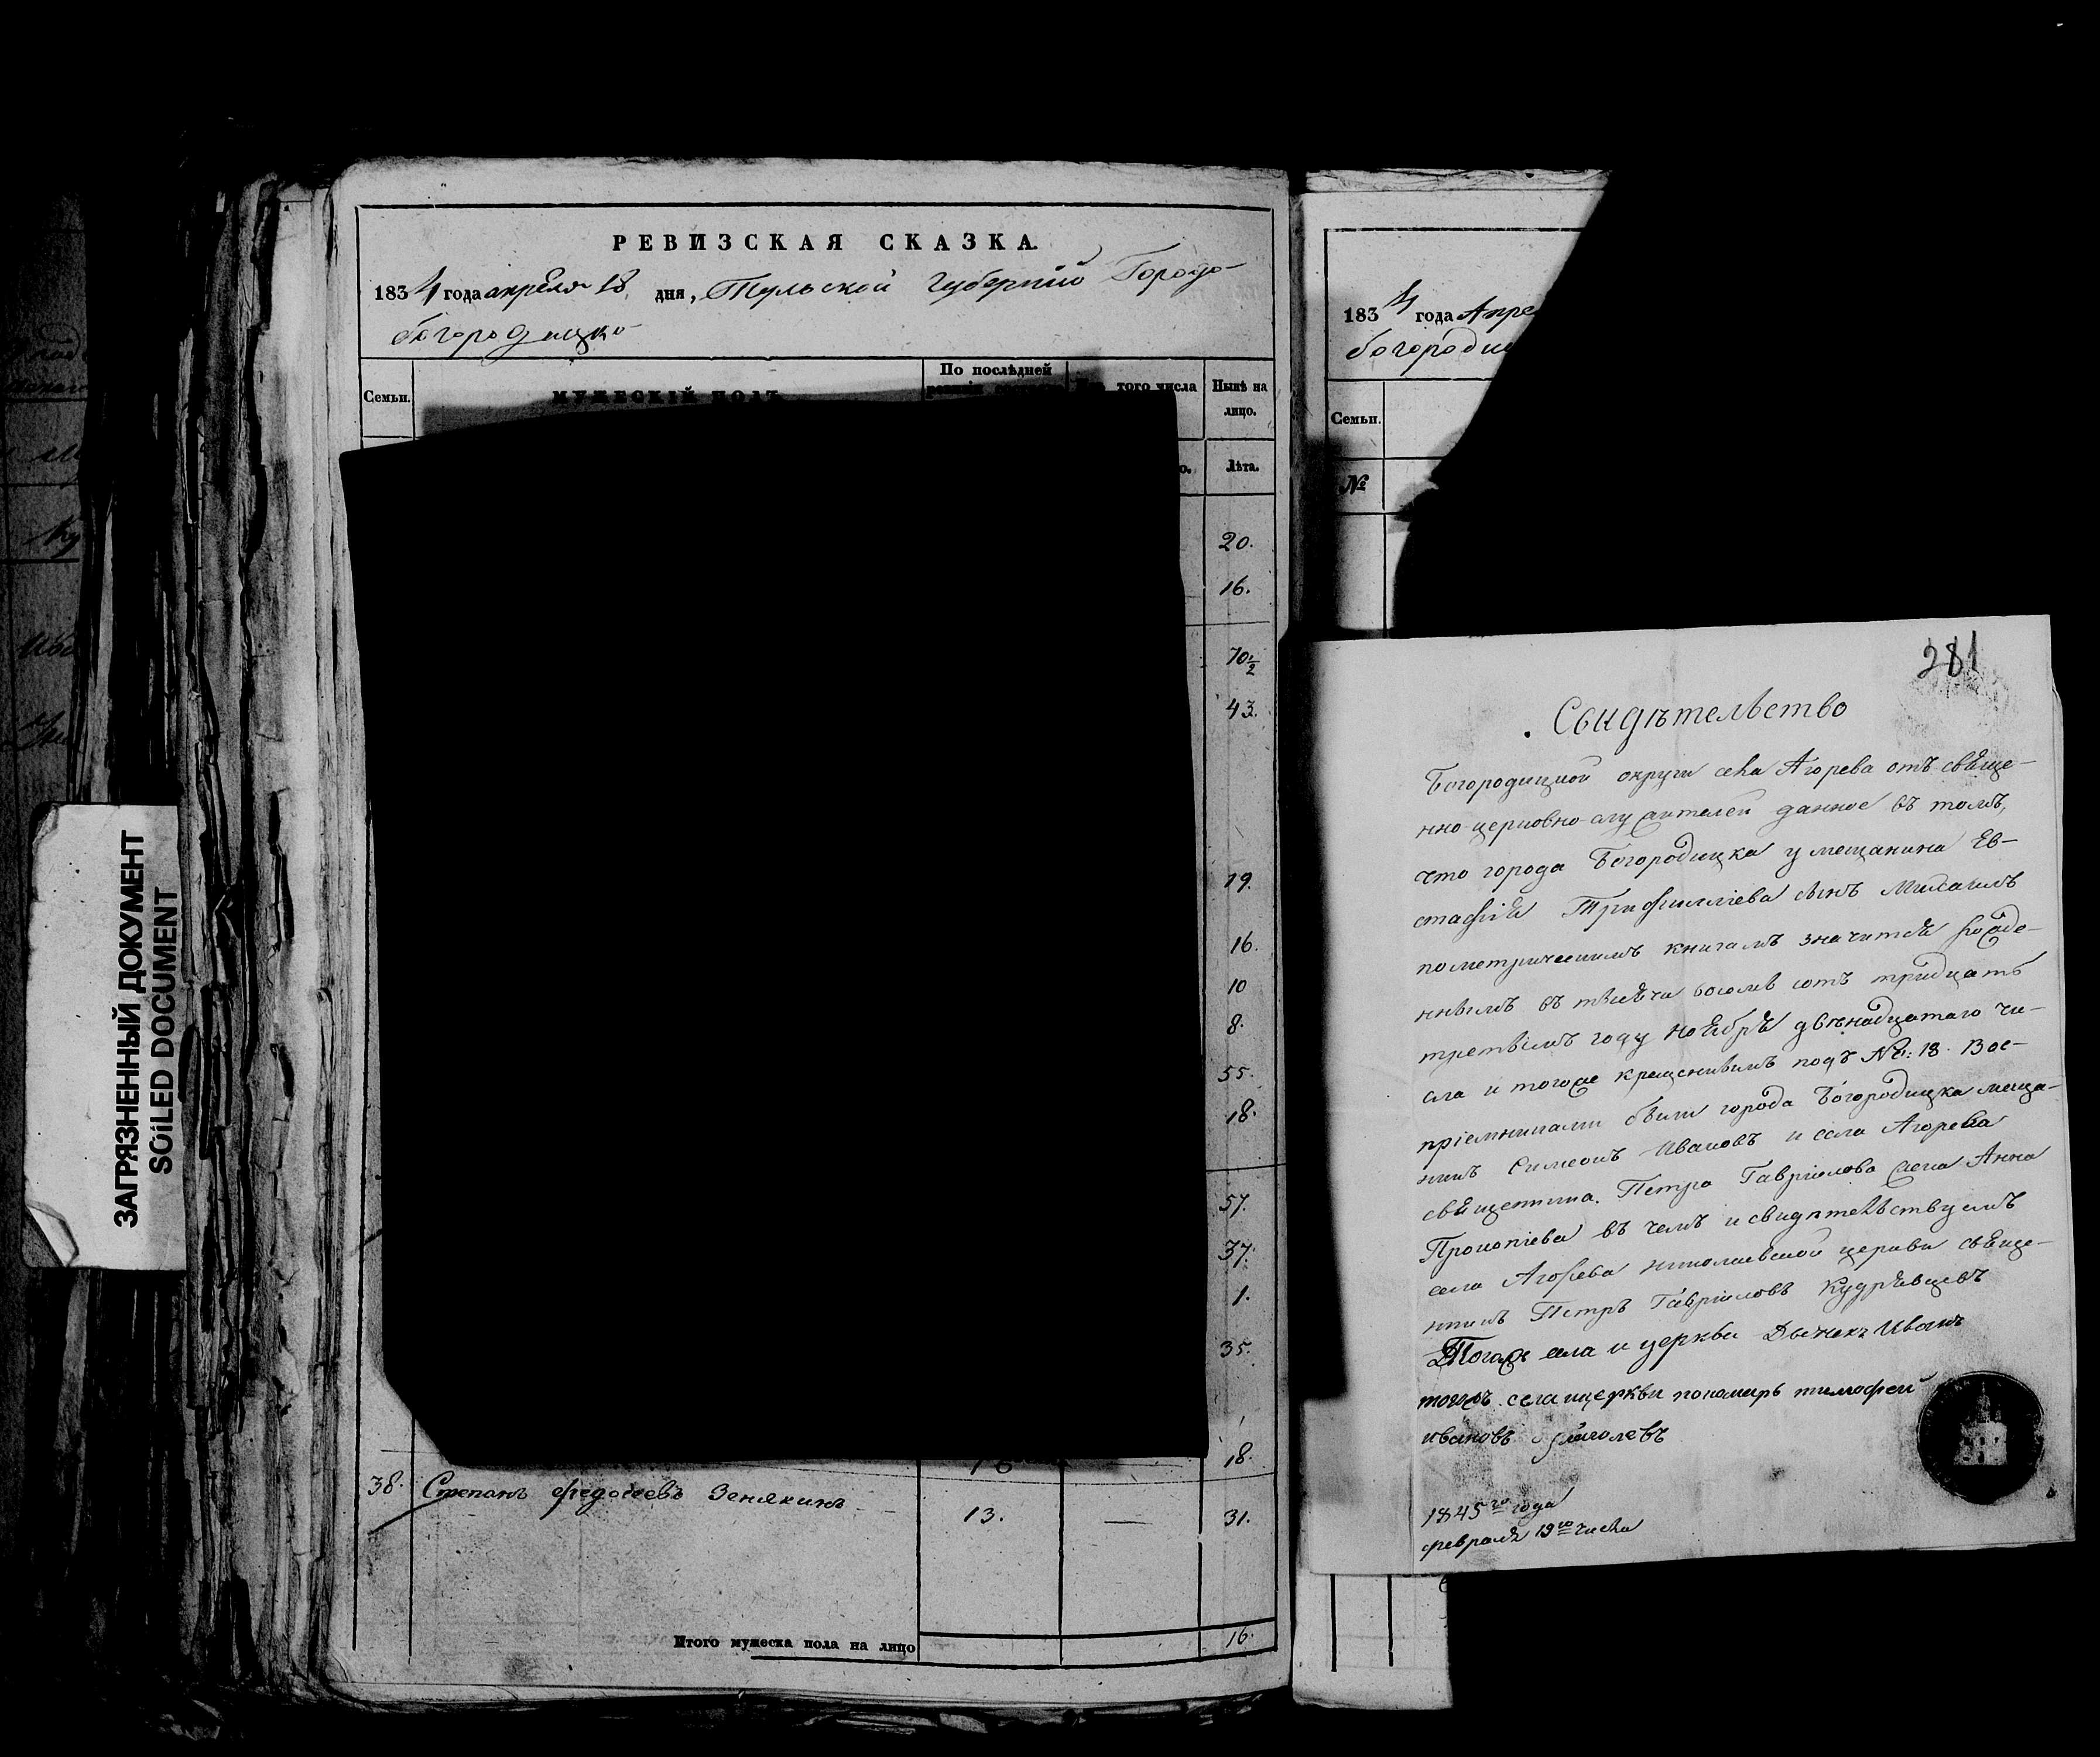 РЕВИЗСКАЯ СКАЗКА.
1834 года апреля 18 дня, Тульской Губернии Города
богородицка
Семьи.
МУЖЕСКІЙ ПОЛЪ
По послѣдней
ревизіи
того числа
Нынѣ на
лицо.
Лѣта.
20.
16.
70½
43.
19.
16.
10
8.
55.
18.
57.
37.
1.
35.
18.
38. Степанъ федосеевъ Зенякинъ 13. — 31.
Итого мужеска пола на лицо 16.
ЗАГРЯЗНЕННЫЙ ДОКУМЕНТ
SOILED DOCUMENT
1834 года Апре
богороди
Семьи.
№
281
Свидѣтельство
Богородицкой округи села Агорева отъ свяще-
нно-церковно-служителей данное въ томъ,
что города Богородицка у мещанина Ев-
стафія Трифиллиева сынъ Михаилъ
по метрическимъ книгамъ значится рожде-
ннымъ въ тысяча восемь сотъ тридцать
третьемъ году ноября двѣнадцатаго чи-
сла и тогоже крещеннымъ подъ №: 18. Вос-
пріемниками были города Богородицка меща-
нинъ Симеонъ Ивановъ и села Агорева
священника Петра Гавріилова жена Анна
Прокопіева въ чемъ и свидѣтельствуемъ
села Агорева николаевской церкви свяще-
нникъ Петръ Гавріиловъ Кудрявцевъ
Тогожъ села и церкви Дьячекъ Иванъ
тогожъ села ицеркви пономарь тимофей
ивановъ
1845го года
февраля 19го числа